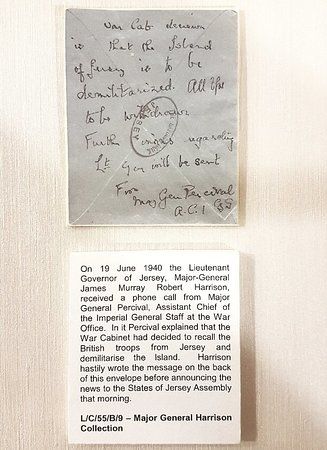 War Cab decision
is that the Island
of Jersey is to be
demilitarized. All Tps
to be withdrawn
Further regarding
Lt Gov will be sent
From
Maj Gen Percival
A.C.I GS
JERSEY
On 19 June 1940 the Lieutenant
Governor of Jersey, Major-General
James Murray Robert Harrison,
received a phone call from Major
General Percival, Assistant Chief of
the Imperial General Staff at the War
Office. In it Percival explained that the
War Cabinet had decided to recall the
British troops from Jersey and
demilitarise the Island. Harrison
hastily wrote the message on the back
of this envelope before announcing the
news to the States of Jersey Assembly
that morning.
L/C/55/B/9 – Major General Harrison
Collection